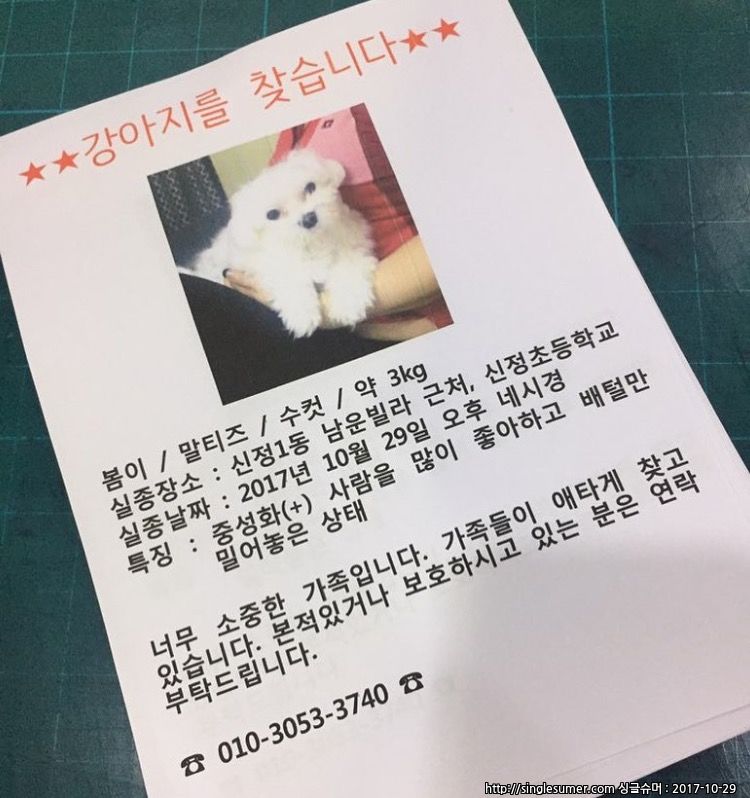 ★★강아지를 찾습니다★★
봄이 / 말티즈 / 수컷 / 약 3kg
실종장소 : 신정1동 남운빌라 근처, 신정초등학교
실종날짜 : 2017년 10월 29일 오후 네시경
특징 : 중성화(+) 사람을 많이 좋아하고 배털만
밀어놓은 상태
너무 소중한 가족입니다. 가족들이 애타게 찾고
있습니다. 본적있거나 보호하시고 있는 분은 연락
부탁드립니다.
☎ 010-3053-3740 ☎
http://singlesumer.com 싱글슈머 : 2017-10-29